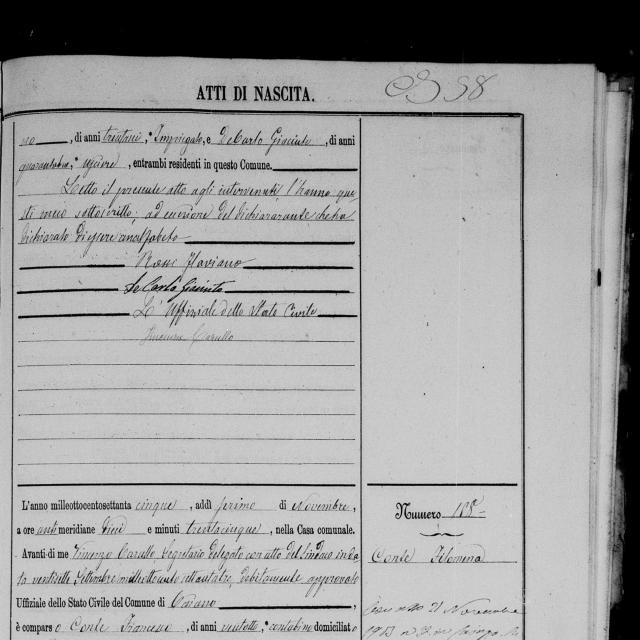 ATTI DI NASCITA.
no, di anni trentatré, Impiegato, e De Carlo Giacinto, di anni
quarantatre, usciere, entrambi residenti in questo Comune.
Letto il presente atto agli intervenuti, l'hanno que
sti meco sottoscritto, ad eccezione del dichiarante che ha
dichiarato di essere analfabeto
Rossi Flaviano
De Carlo Giacinto
L'Uffiziale dello Stato Civile
Vincenzo Carullo
L'anno milleottocentosettanta cinque, addì primo di Novembre,
a ore anti meridiane dieci e minuti trentacinque, nella Casa comunale.
Avanti di me Vincenzo Carullo Segretario delegato con atto del Sindaco in da
ta ventisette Settembre milleottocento settantatre, debitamente approvato
Uffiziale dello Stato Civile del Comune di
è comparso Conte Francesco, di anni ventotto, contadino domiciliato
Numero
Conte Filomena
21 Novembre